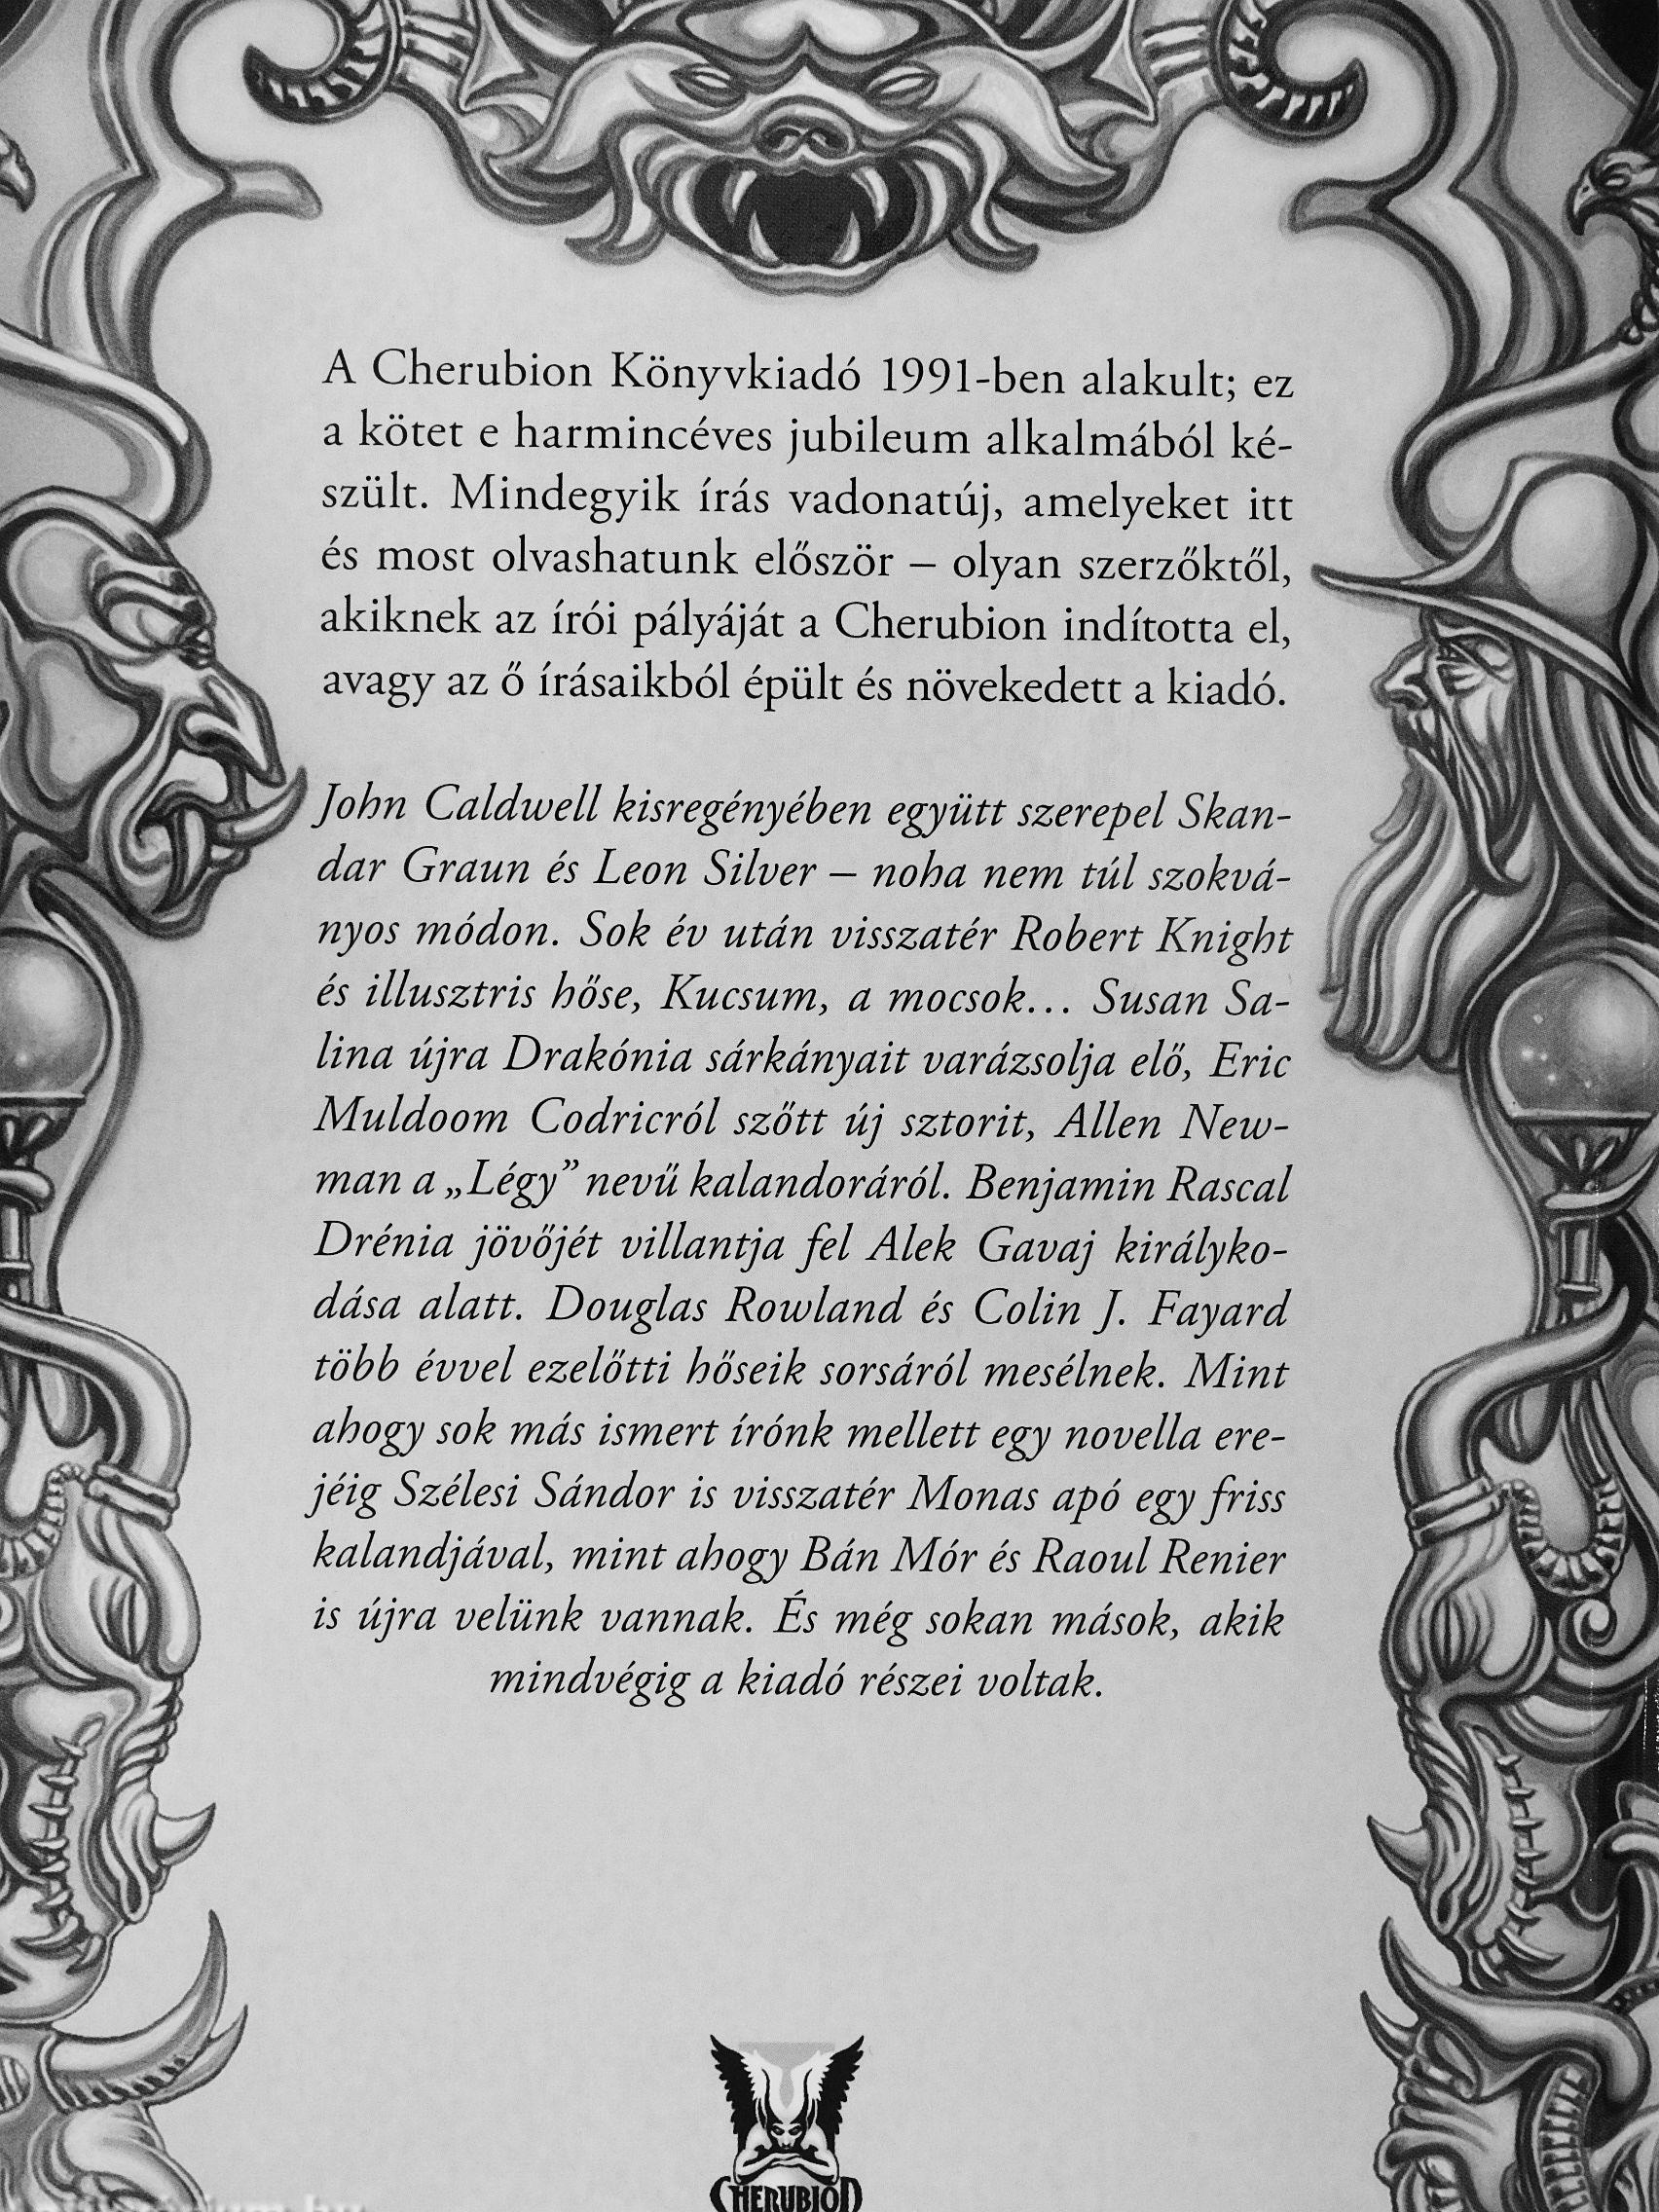 A Cherubion Könyvkiadó 1991-ben alakult; ez
a kötet e harmincéves jubileum alkalmából ké-
szült. Mindegyik írás vadonatúj, amelyeket itt
és most olvashatunk először – olyan szerzőktől,
akiknek az írói pályáját a Cherubion indította el,
avagy az ő írásaikból épült és növekedett a kiadó.
John Caldwell kisregényében együtt szerepel Skan-
dar Graun és Leon Silver – noha nem túl szokvá-
nyos módon. Sok év után visszatér Robert Knight
és illusztris hőse, Kucsum, a mocsok… Susan Sa-
lina újra Drakónia sárkányait varázsolja elő, Eric
Muldoom Codricról szőtt új sztorit, Allen New-
man a „Légy” nevű kalandoráról. Benjamin Rascal
Drénia jövőjét villantja fel Alek Gavaj királyko-
dása alatt. Douglas Rowland és Colin J. Fayard
több évvel ezelőtti hőseik sorsáról mesélnek. Mint
ahogy sok más ismert írónk mellett egy novella ere-
jéig Szélesi Sándor is visszatér Monas apó egy friss
kalandjával, mint ahogy Bán Mór és Raoul Renier
is újra velünk vannak. És még sokan mások, akik
mindvégig a kiadó részei voltak.
CHERUBION